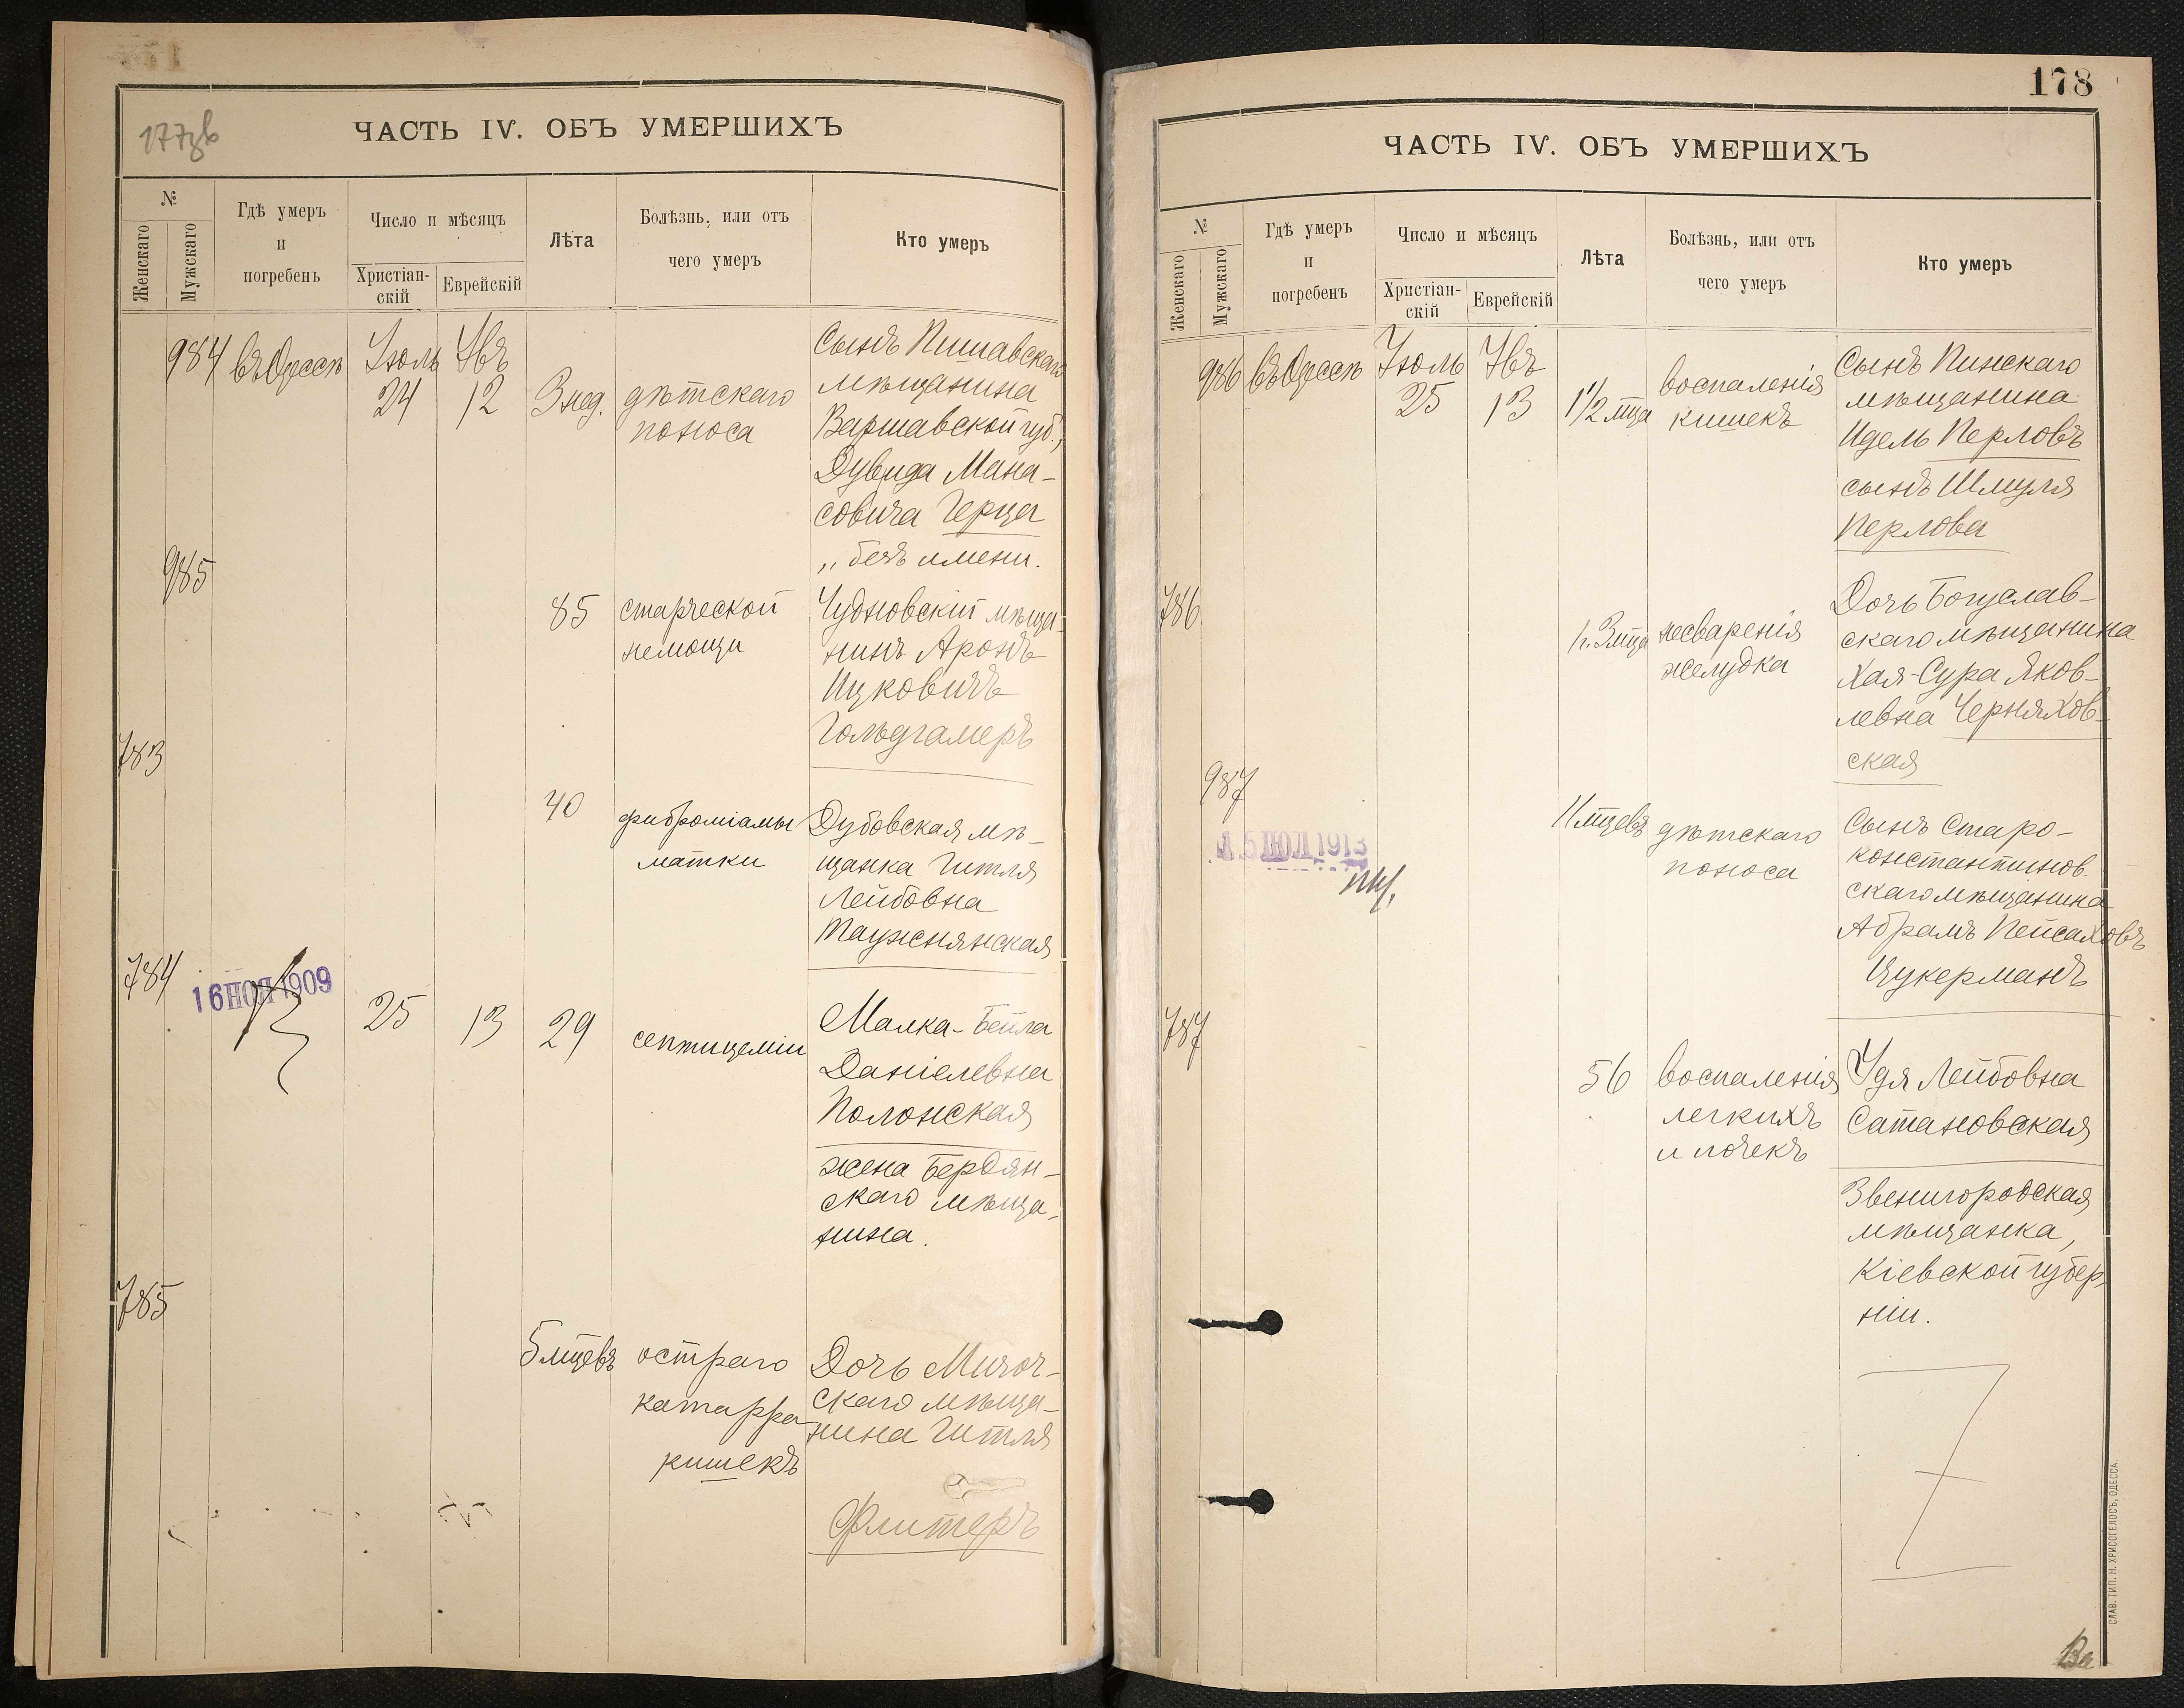 177 зв
ЧАСТЬ IV. ОБЪ УМЕРШИХЪ
№
Женскаго
Мужскаго
Гдѣ умеръ
и
погребенъ
Число и мѣсяцъ
Христіан-
скій
Еврейскій
Лѣта
Болѣзнь, или отъ
чего умеръ
Кто умеръ
984
въ Одессѣ
Іюль
24
Авъ
12
3 нед.
дѣтскаго
поноса
Сынъ
мѣщанина
Варшавской губ.,
Дувида Мана-
совича Герца
„ безъ имени.
985
85
старческой
немощи
Чудновскій мѣща-
нинъ Аронъ
Ицковичъ
Гольдгамеръ
783
40
фиброміомы
матки
Дубовская мѣ-
щанка Гитля
Лейбовна
Таужнянская
784
16 НОЯ 1909
25
13
29
септицеміи
Малка-Бейла
Даніелевна
Полонская
жена Бердян-
скаго мѣща-
нина.
785
5 мцевъ
остраго
катарра
кишекъ
Дочь
скаго мѣща-
нина Гитля
Флитеръ
178
ЧАСТЬ IV. ОБЪ УМЕРШИХЪ
№
Женскаго
Мужскаго
Гдѣ умеръ
и
погребенъ
Число и мѣсяцъ
Христіан-
скій
Еврейскій
Лѣта
Болѣзнь, или отъ
чего умеръ
Кто умеръ
986
въ Одессѣ
Іюль
25
Авъ
13
1 1/2 мца
воспаленія
кишекъ
Сынъ Пинскаго
мѣщанина
Идель Перловъ
сынъ Шмуля
Перлова
786
3 мца
несваренія
желудка
Дочь Богуслав-
скаго мѣщанина
Хая-Сура Яков-
левна Черняхов-
ская
987
ІЮЛ 1913
11 мцевъ
дѣтскаго
поноса
Сынъ Старо-
константинов.
скаго мѣщанина
Абрамъ Пейсаховъ
Цукерманъ
787
56
воспаленія
легкихъ
и почекъ
Удя Лейбовна
Сатановская
Звенигородская
мѣщанка,
Кіевской губер-
ніи.
СЛАВ. ТИП. Н. ХРИСОГЕЛОСЪ, ОДЕССА.